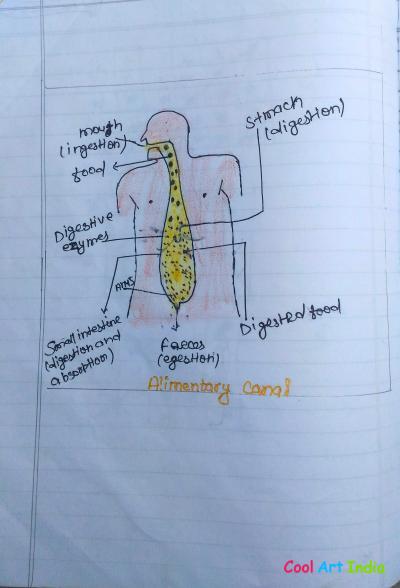 mouth
(ingestion)
food
Stmach
(digestion)
Digestive
enzymes
Anus
Small intestine
(digestion and
absorption)
faeces
(egestion)
Digested food
Alimentary Canal
Cool Art India